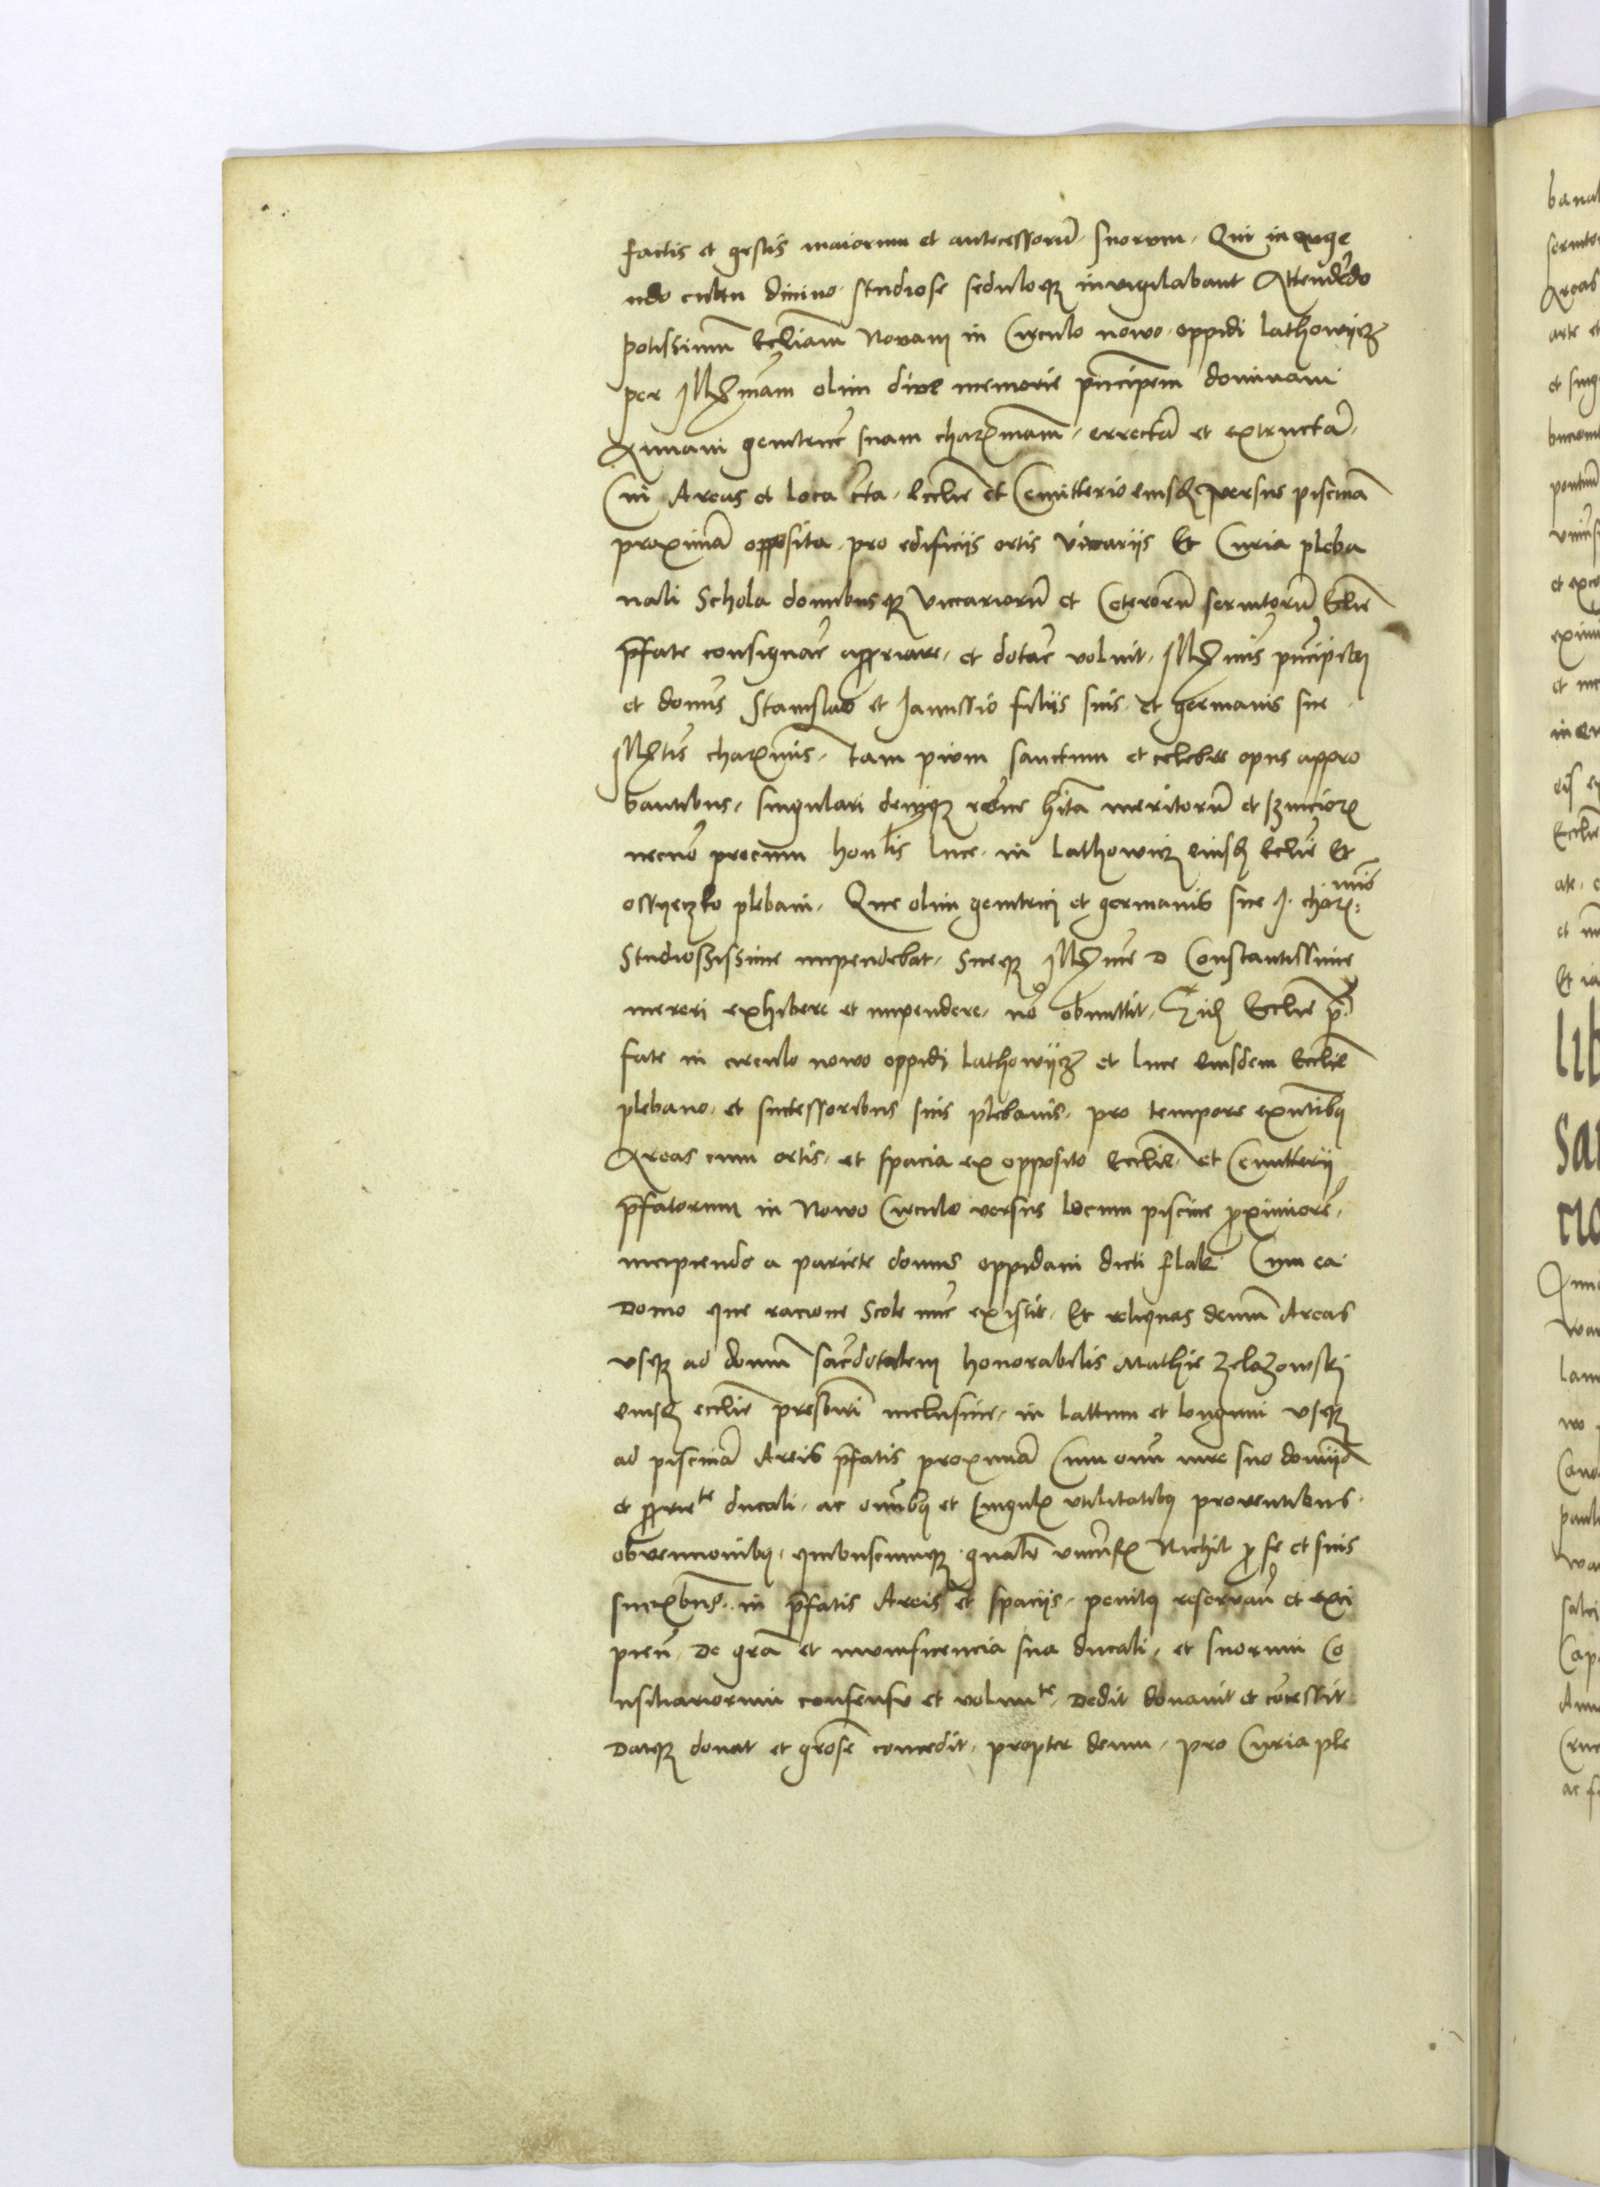 factis et gestis maiorum et antecessorū suorum Qui in auge
ndo cultu divino studiose seduloqꝫ invigilabant Attendēdo
potissimū Ecclīam Novam in Circulo nowo oppidi Lathowijcz
per Illr̄mam olim dive memorie prīncipem dominam
Annam genitricē suam charr̄mam errectā et extructā
Cui Areas et loca cīrca Ecclīe et Cemitterio eiusdꝫ versus piscinā
proximā opposita pro edificijs ortis Vicarijs Et Curia pleba
nali Schola domibusqꝫ Viccariorū et Ceterorū servitorū Ecclīe
p̄fate consignare appropriare et dotare voluit Illr̄mis prīncipibꝫ
et domīs Stanislao et Janussio filijs suis et germanis sue
Illr̄tis charr̄mis tam pium sanctum et celebre opus appro
bantibus singulari deniqꝫ rōne hīta meritorū et
necnō precum honlīs Luce in Lathowicz eiusdꝫ Ecclīe Et
Ossyeczko plebani Que olim genitrici et germanis sue I charr̄mis
Studiosissime impendebat Sueqꝫ Illr̄me D Constantissime
mereri exhibere et impendere nō obmittit Ecclīe p̄
fate in circulo nowo oppidi Lathowijcz et Luce eiusdem Ecclīe
plebano et successoribus suis plebanis pro tempore exn̄tibꝫ
Areas cum ortis et spacia ex opposito Ecclīe et Cemitterij
p̄fatorum in Nowo Circulo versus locum piscine proximiorē
incipiendo a pariete domus oppidani dicti Flak Cum ea
Domo que racione Scole nūc existit Et reliquas demū Areas
vsqꝫ ad domū sacerdotalem honorabilis Mathie Zelazowski
eiusdꝫ ecclīe presbiteri inclusive in lattum et longum vsqꝫ
ad piscinā Areis p̄fatis proximā Cum omī iure suo domīo
et proprietᵗᵉ ducali ac omībꝫ et singulꝫ vtilitatibꝫ proventibus
obvencionibꝫ quibuscumqꝫ gn̄aliter Nichil pro se et suis
succr̄ibus in p̄fatis Areis et spacijs penitꝫ reservan̄ et exci
pien̄ De gra͞ et munificencia sua ducali et suorum Co
nsiliariorum consensu et voluntᵗᵉ Dedit donavit et cōcessit
Datqꝫ donat et grōse concedit propter deum pro Curia ple